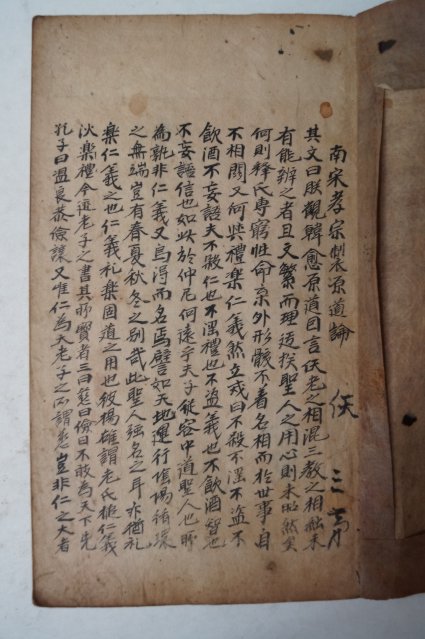 南宋孝宗製原道論 佚 三筹
其文曰朕觀韓愈原道因言佚老之相混三教之相絀未
有能辨之者且文繁而理迂揆聖人之用心則未昭然矣
何則释氏専窮性命棄外形骸不着名相而於世事自
不相關又何與禮樂仁義然立戒曰不殺不淫不盜不
飲酒不妄語夫不殺仁也不淫禮也不盜義也不飲酒智也
不妄語信也如此於仲尼何遠乎夫子從容中道聖人也所
為孰非仁義又烏得而名焉譬如天地運行陰陽循環
之無端豈有春夏秋冬之别哉此聖人强名之耳亦猶礼
樂仁義之也仁義礼樂固道之用也彼揚雄謂老氏槌仁義
㳄樂禮今迹老子之書其所寶者三曰慈曰儉曰不敢為天下先
孔子曰温良恭儉讓又唯仁為大老子之所謂慈豈非仁之大者